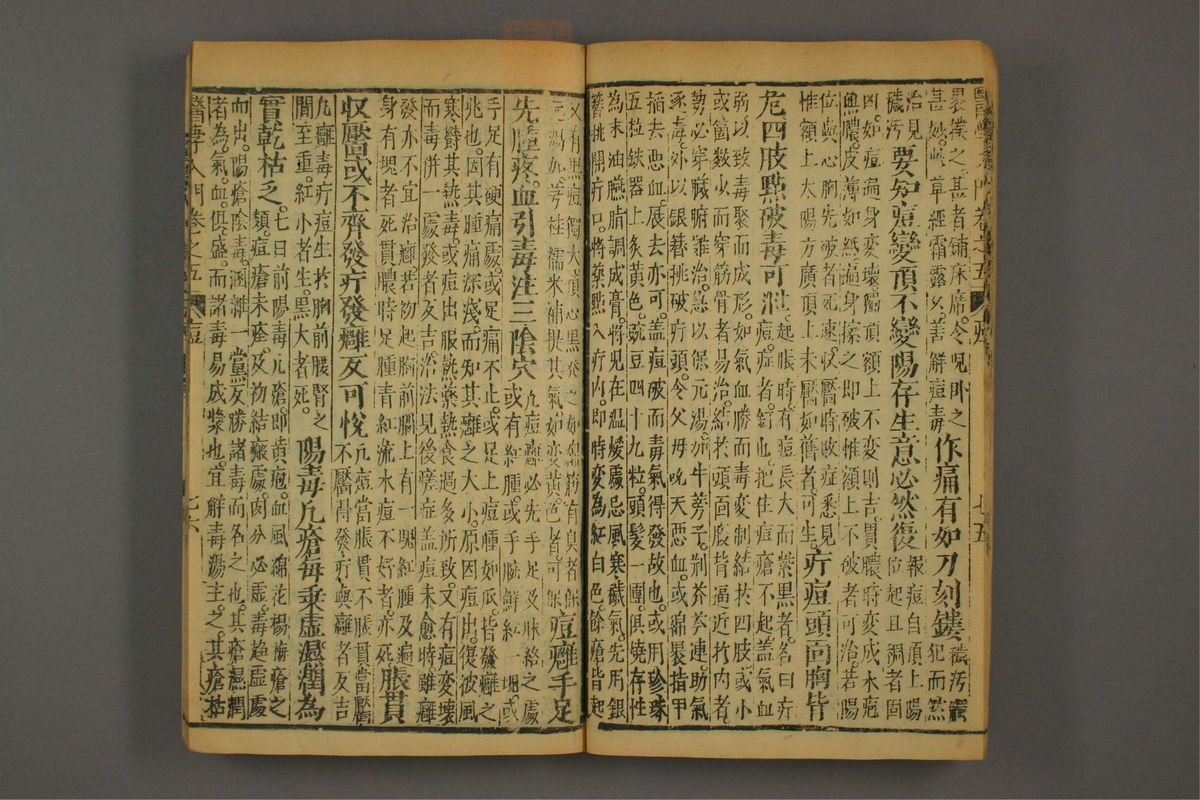 醫學入門 卷之五 痘 七五
裹撲之甚者鋪床席令兒臥之
甚妙草經霜露久善解痘毒
作痛有如刀刻鏤
穢汚
犯而然
治見
穢汚
要知痘變頂不變陽存生意必然復
報痘自頂上陽
位起且潤者固
凶如痘遍身变壞獨頂額上不变則吉貫膿時变成水疱
無膿皮薄如紙遍身搽之即破惟額上不破者可治若陽
位與心胸先破者死速收靨時收靨症悉見
惟額上太陽方廣頂上未靨如舊者可生
疔痘頭面胸皆
危四肢點破毒可泄
起脹時有痘長大而紫黑者名曰疔
痘疔者釘也把住痘瘡不起蓋氣血
弱以致毒聚而成形如氣血勝而毒变制結於四肢或小
或箇數少而穿筋骨者易治結於頭面胺背逼近於内者
勢必穿臟腑難治急以保元湯加牛蒡子荊芥芩連助氣
逐毒外以銀簪挑破疔頭令父母吮去惡血或綿裹指甲
掐去惡血展去亦可蓋痘破而毒氣得發故也或用珍珠
五粒鉄器上炙黃色豌豆四十九粒頭髮一團俱燒存性
為末油臙脂調成膏將兒在温煖處忌風寒穢氣先用銀
簪挑開疔口將藥點入疔内即時变為紅白色餘瘡皆起
又有黑痘獨大實心黑者之如綿筋有臭者保
元湯加芎桂糯米補提其氣如变黃色者可保
痘癰手足
先腫疼血引毒注三陰穴
凡痘癰必先手足及脉絡之處
或有紅腫或手腕鮮紅一塊或
手足有硬痛處或足痛不止或足上痘腫如瓜皆發癰之
兆也因其腫痛深淺而知其癰之大小原因痘出復彼風
寒欝其熱毒或痘出服熱藥熱食過多所致又有痘变壞
而毒併一處發者及吉治法見後孽症蓋痘未愈時雖癰
發亦不宜治癰若初起胸前臈上有一塊紅腫及遍
身有塊者死貫膿時足腫青紅流水痘不好者亦死
脹貫
収靨或不齊發疔發癰反可悅
凡痘當脹貫不脹貫當靨
不靨得發疔與癰者反吉
凡癰毒疔痘生於胸前腰腎之
間至重紅小者生黑大者死
陽毒凡瘡每乘虛濕潤為
實乾枯之
七日前陽毒凡瘡即黃疱血風綿花楊梅瘡之
類痘瘡未痊及初結瘢處肉分必虛毒趋虛處
而出陽瘡陰毒涵雜一黨反勝諸毒而名之也其瘡濕潤
者為氣血俱盛而諸毒易成漿也宜解毒湯主之其瘡枯
醫學入門 卷之五 痘 七六